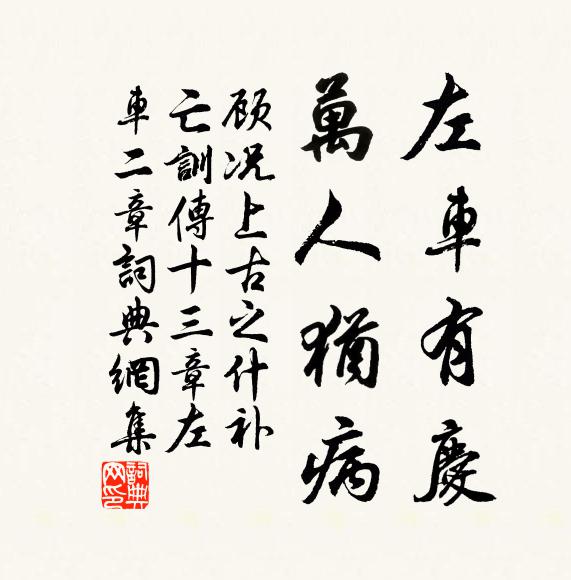 左車有慶
萬人猶病
顾况上古之什补
亡訓傳十三章左
車二章詞典網集
詞典網印